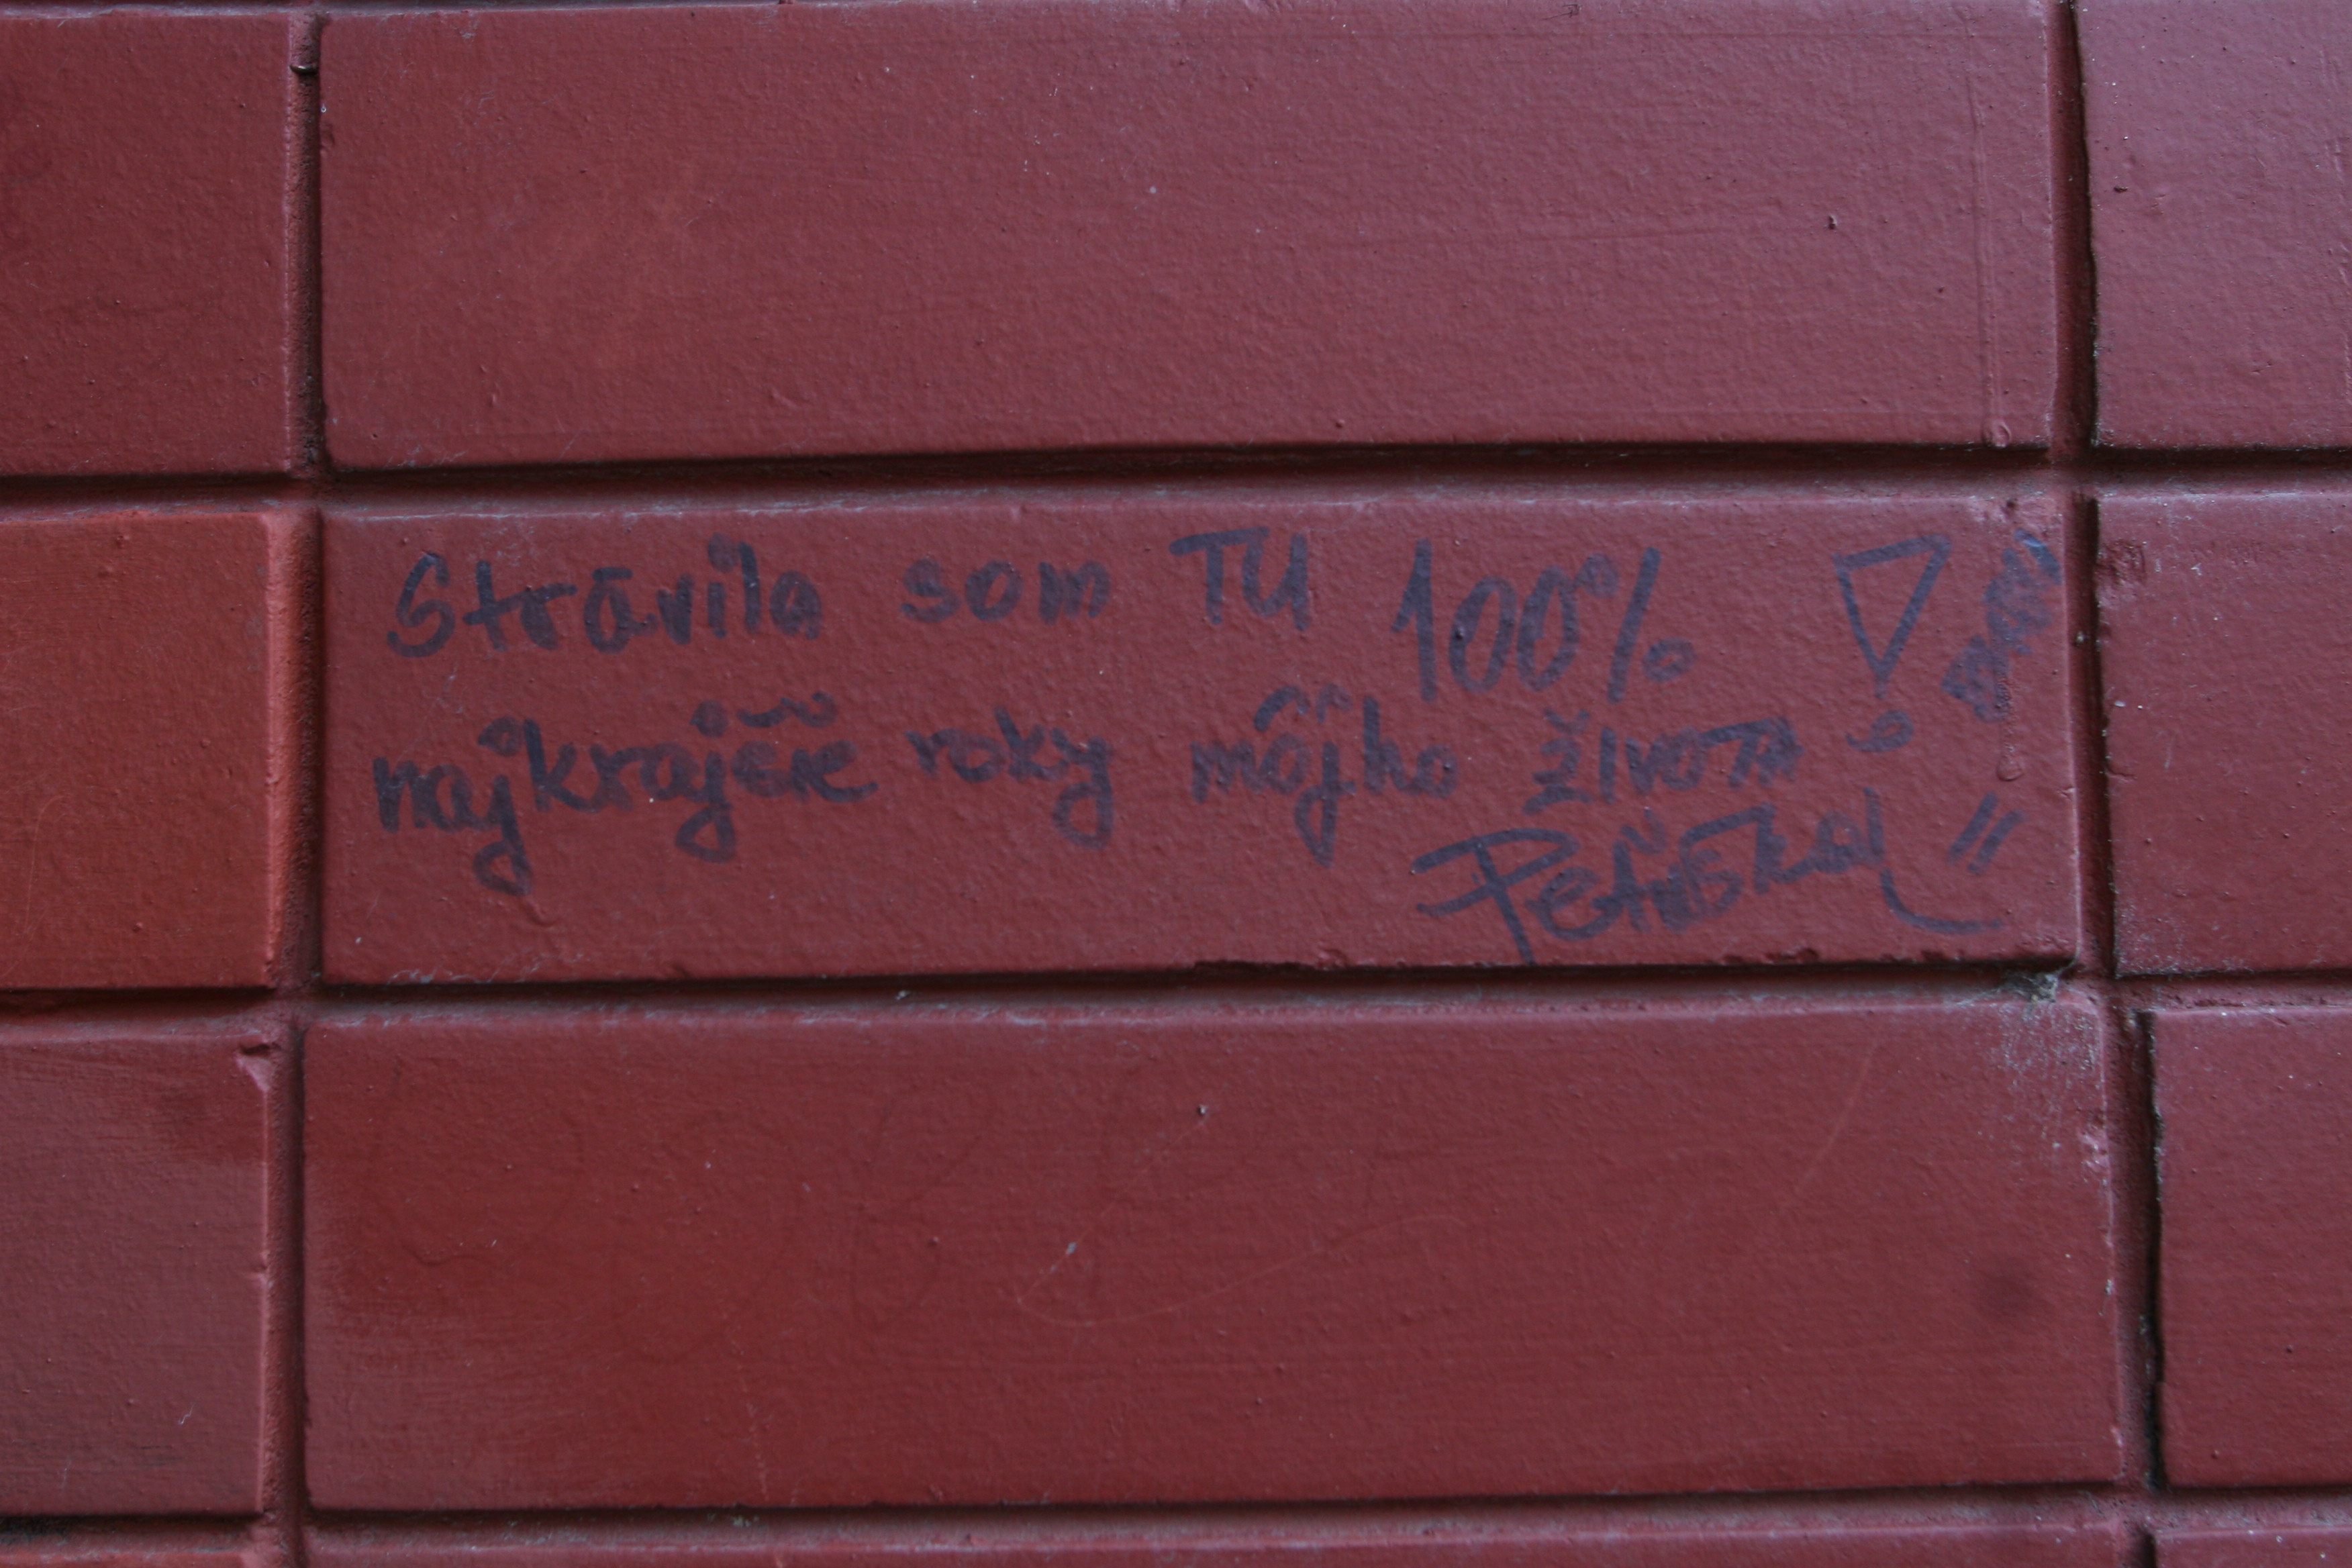 Strávila som TU 100%
najkrajšie roky môjho života !
Peťuška "